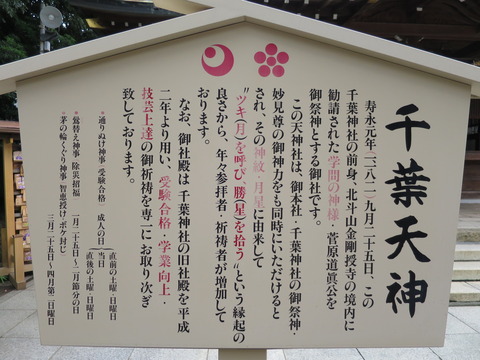 千葉天神
寿永元年(一一八二)九月二十五日、この
千葉神社の前身、北斗山金剛授寺の境内に
勧請された学問の神様・菅原道眞公を
御祭神とする御社です。
この天神社は、御本社・千葉神社の御祭神・
妙見尊の御神力をも同時にいただけると
され、その神紋・月星に由来して
“ツキ(月)を呼び勝(星)を拾う”という縁起の
良さから、年々参拝者・祈祷者が増加して
おります。
なお、御社殿は千葉神社の旧社殿を平成
二年より用い、受験合格・学業向上・
技芸上達の御祈祷を専一にお取り次ぎ
致しております。
通りぬけ神事 受験合格 成人の日 直前の土曜・日曜日
当日
直後の土曜・日曜日
鷽替え神事 除災招福 一月二十五日〜二月節分の日
茅の輪くぐり神事 智恵授け・ボケ封じ
三月二十五日〜四月第二日曜日